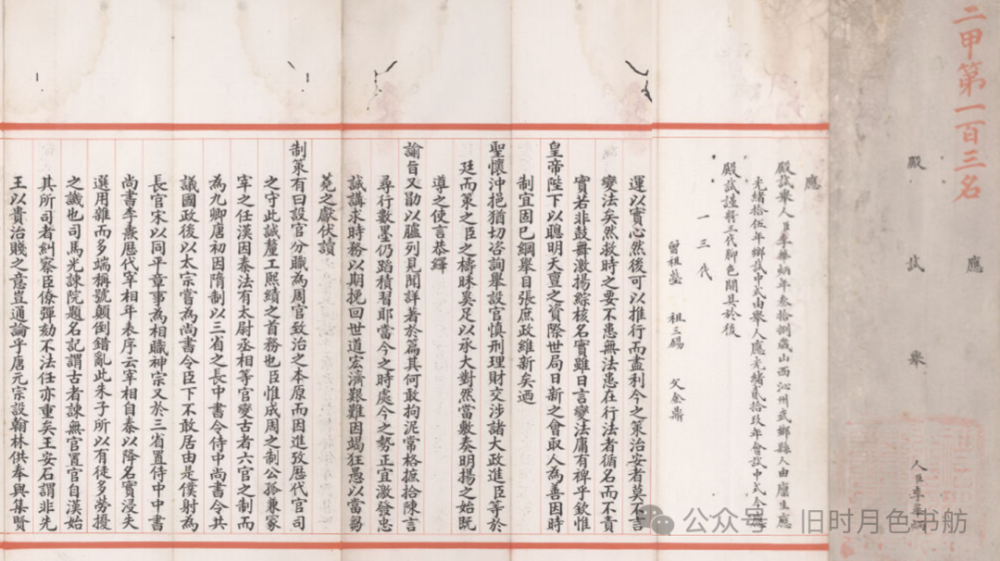 二甲第一百三名
應
殿試舉
人臣李華
應
殿試舉人臣李華炳年叁拾捌歲山西沁州武鄉縣人由廩生應
光緒拾伍年鄉試中式由舉人應光緒貳拾玖年會試中式今應
殿試謹將三代脚色開具於後
一三代
曾祖 祖三錫 父金鼎
運以實心然後可以推行而盡利今之策治安者莫不言
變法矣然救時之要不患無法患在行法者循名而不責
實若非鼓舞激揚綜核名實雖日言變法庸有裨乎欽惟
皇帝陛下以聰明天亶之資際世局日新之會取人為善因時
制宜固已綱舉目張庶政維新矣迺
聖懷沖挹猶切咨詢舉設官慎刑理財交涉諸大政進臣等於
廷而策之臣之檮昧奚足以承大對然當敷奏明揚之始既
導之使言恭繹
諭旨又勖以臚列見聞詳著於篇其何敢拘泥常格摭拾陳言
尋行數墨仍蹈積習耶當今之時處今之勢正宜激發忠
誠講求時務以期挽回世道宏濟艱難因竭狂愚以當芻
蕘之獻伏讀
制策有曰設官分職為周官致治之本原而因進攷歷代官司
之守此誠釐工熙績之首務也臣惟成周之制公孤兼冢
宰之任漢因秦法有太尉丞相等官變古者六官之制而
為九卿唐初因隋制以三省之長中書令侍中尚書令共
議國政後以太宗嘗為尚書令臣下不敢居由是僕射為
長官宋以同平章事為相職神宗又於三省置侍中中書
尚書李燾歷代宰相年表序云宰相自秦以降名實浸失
選用雜而多端稱號顛倒錯亂此朱子所以有徒多勞擾
之譏也司馬光諫院題名記謂古者諫無官置官自漢始
其所司者糾察臣僚彈劾不法任亦重矣王安石謂非先
王以貴治賤之意豈通論乎唐元宗設翰林供奉與集賢
公众号·旧时月色书舫